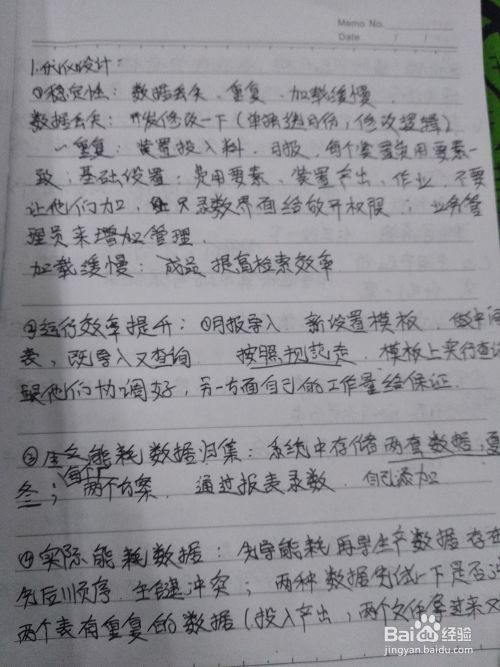 Memo No.
Date / /
1.优化设计：
①稳定性：数据丢失、重复、加载缓慢.
数据丢失：开发修改一下（单独建月份，修改逻辑）
重复：装置投入料、日报，每个装置费用要素一
致；基础设置：费用要素、装置产出、作业，不要
让他们加，只录数界面给放开权限；业务管
理员来增加管理.
加载缓慢：成品 提高检索效率
②运行效率提升：①月报导入 新设置模板 做中间
表，既导入又查询 按照规范走，模板上实行查询
跟他们协调好，另一方面自己的工作量给保证.
③能耗数据归集：系统中存储两套数据，夏
冬；两个方案 通过报表录数 自己添加
④实际能耗数据：先导能耗再导生产数据 存在
先后顺序 主键冲突；两种数据先试一下是否冲
两个表有重复的数据（投入产出，两个文件拿过来又
Baidu经验
jingyan.baidu.com